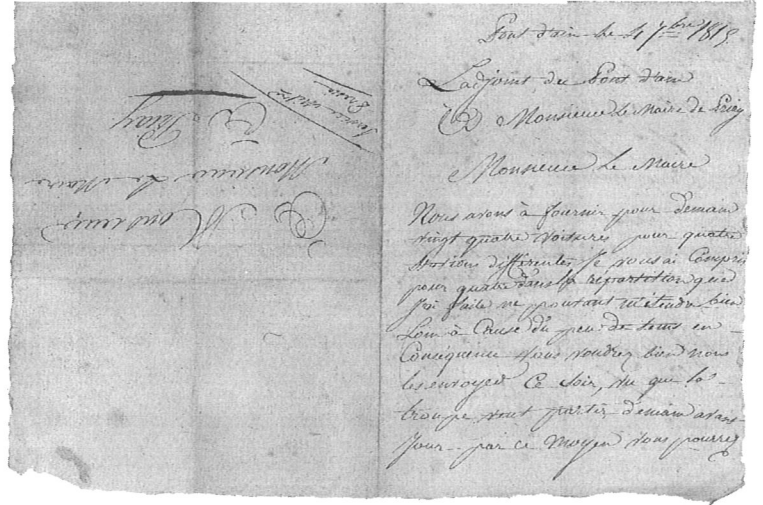 Pont d'ain le 4 7bre 1815
L'adjoint du Pont d'ain
A Monsieur le Maire de
Monsieur le Maire
Nous avons à fournir pour demain
vingt quatre voitures pour quatre
stations differentes Je vous ai Compris
pour quatre dans la repartition que
J'ai faite ne pouvant m'etendre bien
Loin à Cause du peu de tems en
Conçequence Vous voudrez bien nous
les envoyer Ce Soir, vu que la
troupe veut partir demain avant
Jour par ce moyen Vous pourrez
A Monsieur
Monsieur le Maire
A